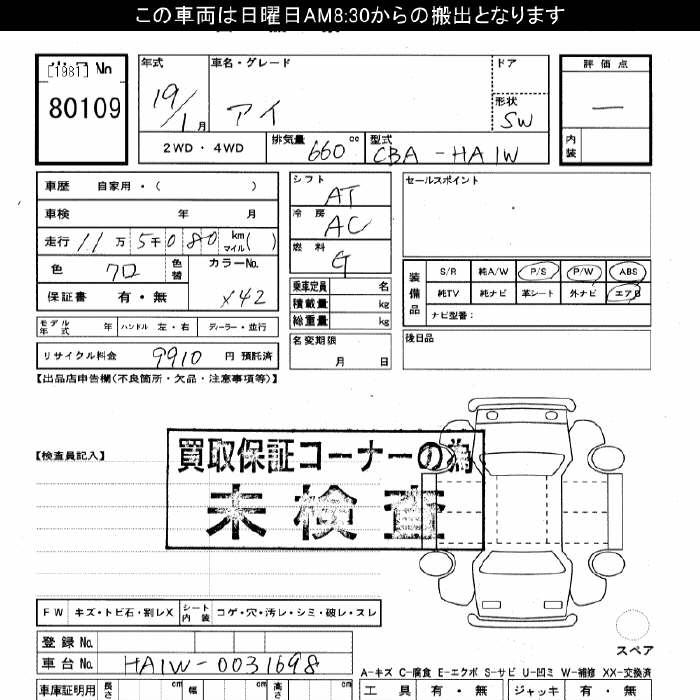 この車両は日曜日AM8:30からの搬出となります
[1981] No
80109
年式 19/1月
車名・グレード アイ
ドア
形状 SW
評価点 —
内装
2WD・4WD
排気量 660 cc
型式 CBA-HA1W
車歴 自家用・( )
車検 年 月
走行 11万5千080 km マイル( )
色 クロ 色替
カラーNo. X42
保証書 有・無
モデル年式 年 ハンドル 左・右 ディーラー・並行
リサイクル料金 9910 円 預託済
シフト AT
冷房 AC
燃料 G
乗車定員 名
積載量 kg
総重量 kg
名変期限 月 日
セールスポイント
装備品
S/R 純A/W P/S P/W ABS
純TV 純ナビ 革シート 外ナビ エアB
ナビ型番:
後日品
【出品店申告欄(不良箇所・欠品・注意事項等)】
【検査員記入】
買取保証コーナーの為
未検査
FW キズ・トビ石・割レX シート内装 コゲ・穴・汚レ・シミ・破レ・スレ
登録No.
車台No. HA1W-0031698
車庫証明用 長さ cm 幅 cm 高さ cm
スペア
A-キズ C-腐食 E-エクボ S-サビ U-凹ミ W-補修 XX-交換済
工具 有・無 ジャッキ 有・無